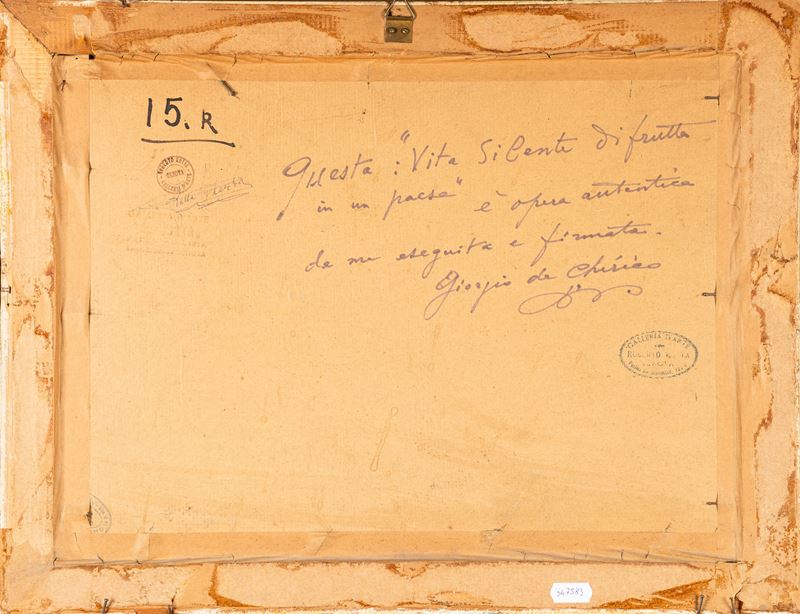 15. R
Questa: "Vita Silente di frutta
in un paese" è opera autentica
da me eseguita e firmata.
Giorgio de Chirico
GALLERIA D'ARTE
ROBERTO
347583